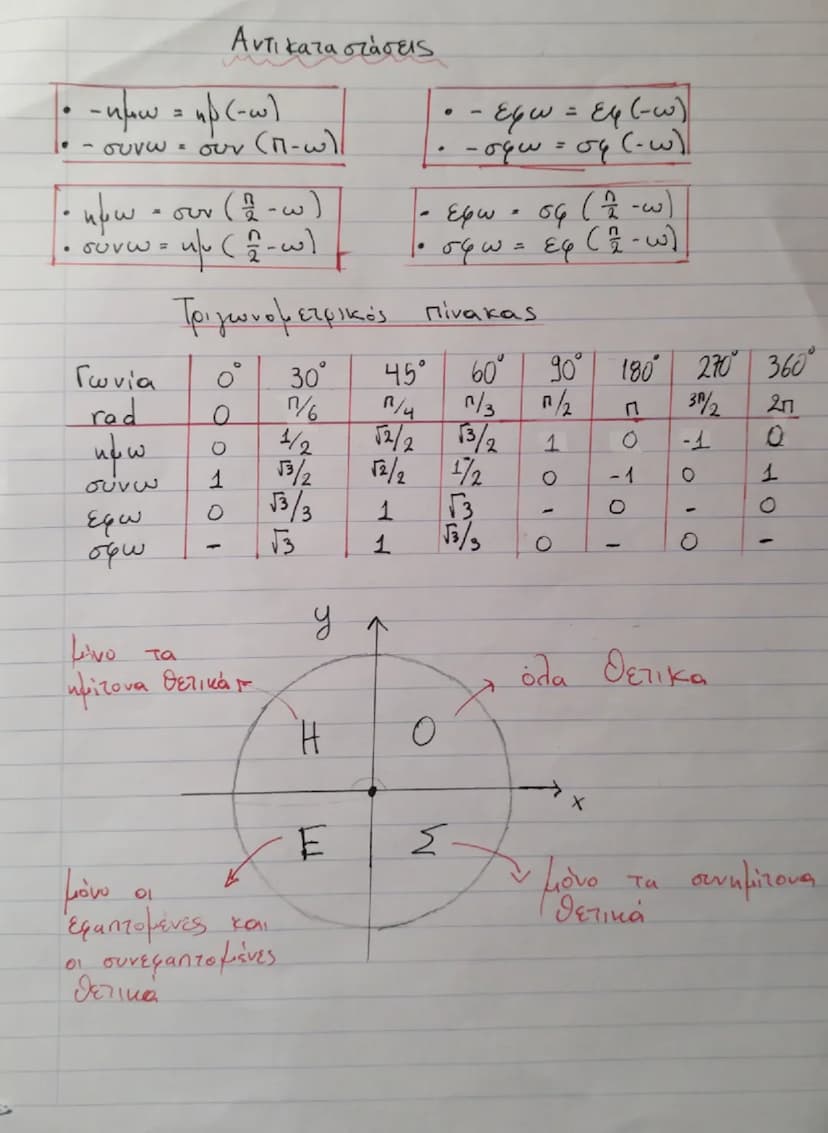 Αντικαταστάσεις
• -ημω = ημ(-ω)
• -συνω = συν(π-ω)
• -εφω = εφ(-ω)
• -σφω = σφ(-ω)
• ημω = συν(π/2 -ω)
• συνω = ημ(π/2 -ω)
- εφω = σφ(π/2 -ω)
• σφω = εφ(π/2 -ω)
Τριγωνομετρικός πίνακας
Γωνία 0° 30° 45° 60° 90° 180° 270° 360°
rad 0 π/6 π/4 π/3 π/2 π 3π/2 2π
ημω 0 1/2 √2/2 √3/2 1 0 -1 0
σύνω 1 √3/2 √2/2 1/2 0 -1 0 1
εφω 0 √3/3 1 √3 - 0 - 0
σφω - √3 1 √3/3 0 - 0 -
y
μόνο τα
ημίτονα θετικά
όλα θετικα
Η Ο
x
Ε Σ
μόνο οι
εφαπτομένες και
οι συνεφαπτομένες
θετικά
μόνο τα συνημίτονα
θετικά